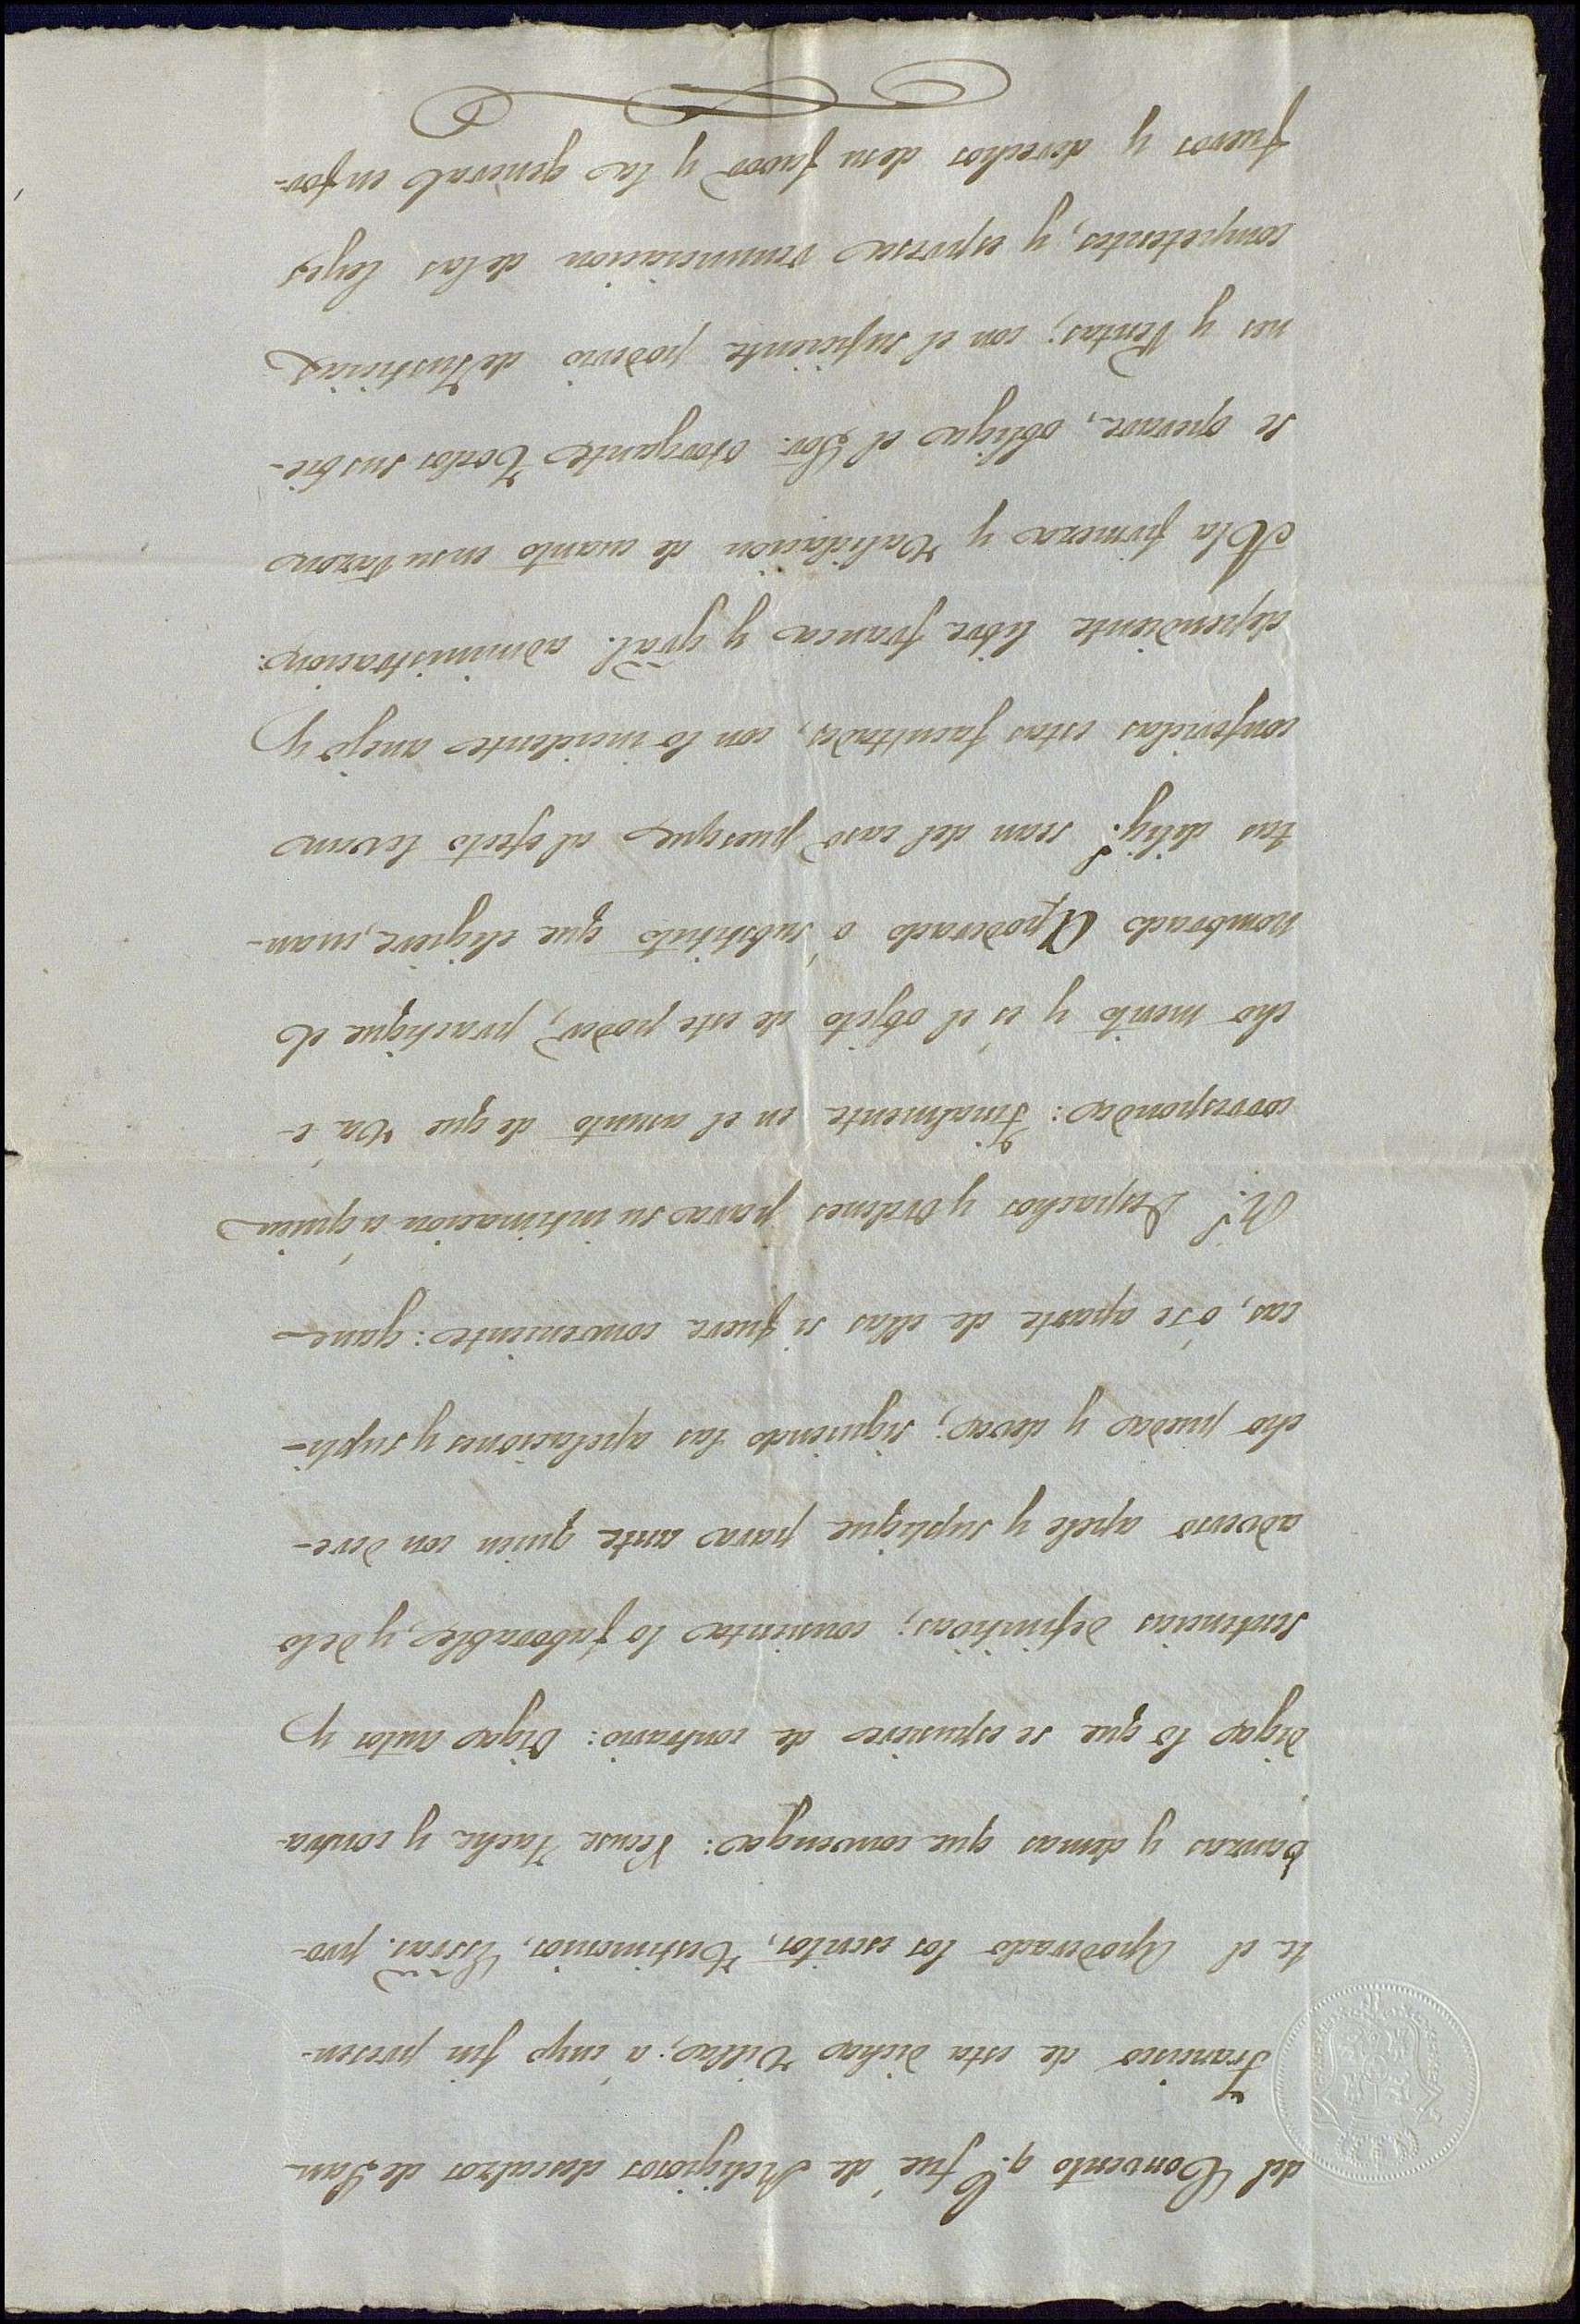 del Convento q.e fué de Religiosos descalzos de San
Francisco de esta dicha Villa; á cuyo fin presen-
te el Apoderado los escritos, Testimonios, Essras. pro-
banzas y demas que convenga: Recuse Tache y contra-
diga lo que se espusiere de contrario: Oiga autos y
sentencias definitivas; consienta lo faborable, y delo
adverso apele y suplique para ante quien con dere-
cho pueda y deva; siguiendo las apelaciones y supli-
cas, ó se aparte de ellas si fuere conveniente: gane
R.s Despachos y Ordenes para su intimacion á quien
corresponda: Finalmente en el asunto de que vá é-
cho merito y es el objeto de este poder, practique el
nombrado Apoderado ó substituto que eligiere, cuan-
tas dilig.s sean del caso pues que al efecto levan
conferidas estas facultades, con lo incidente anejo y
dependiente libre franca y gral. administracion:
A la firmeza y Validacion de cuanto en su razon
se operare, obliga el Sor. otorgante Todos sus bie-
nes y Rentas; con el suficiente poderio de Justicias
competentes, y espresa renunciacion de las leyes
fueros y derechos de su favor y la general en for-